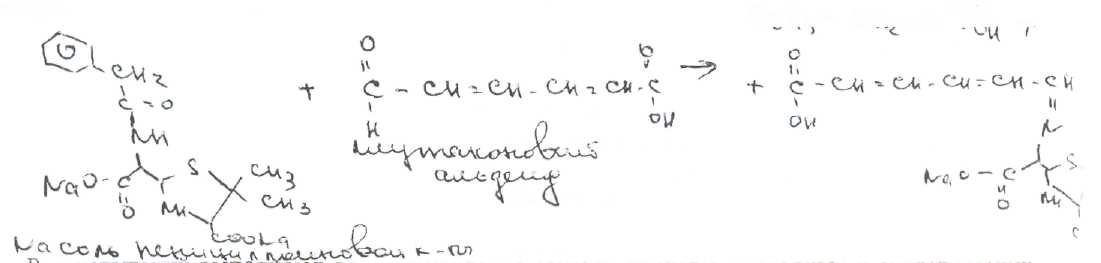 CH2
C=O
NH
NaO-C
O
S
CH3
CH3
NH
COONa
+
O
C - CH=CH-CH=CH-C
H
O
OH
глутаконовый
альдегид
+
O
C - CH=CH-CH=CH-CH
OH
N
NaO-C
O
S
NH
Na соль пенициллоиновой к-ты